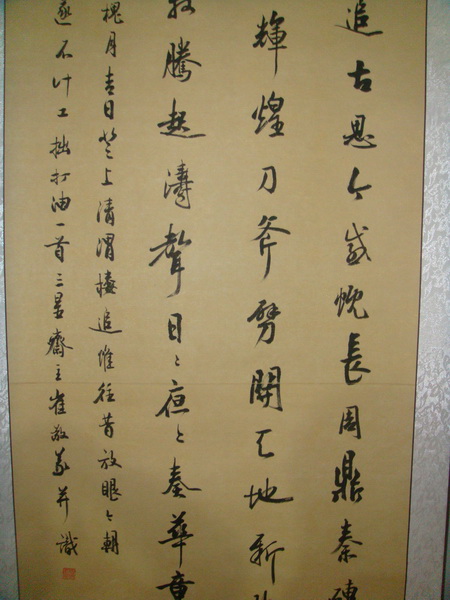 追古思今感慨長周鼎秦磚
輝煌刀斧劈開天地新
騰起濤聲日日夜夜奏華章
槐月吉日登上清渭樓追惟往昔放眼今朝
遂不計工拙打油一首三星齋主崔敬義并識